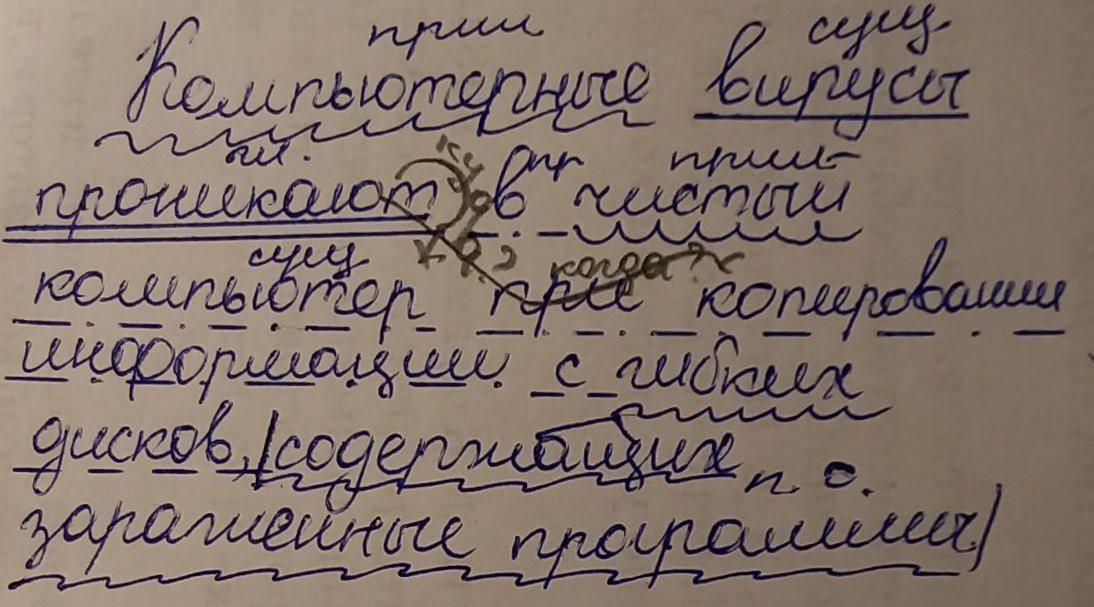 прил сущ
Компьютерные вирусы
гл. куда? пр прил
проникают в чистый
сущ когда?
компьютер при копировании
информации с гибких
дисков, |содержащих п. о.
заражённые программы|